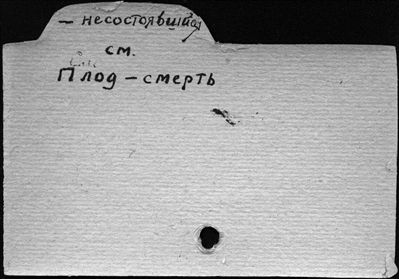 – несостоявшийся
см.
Плод – смерть